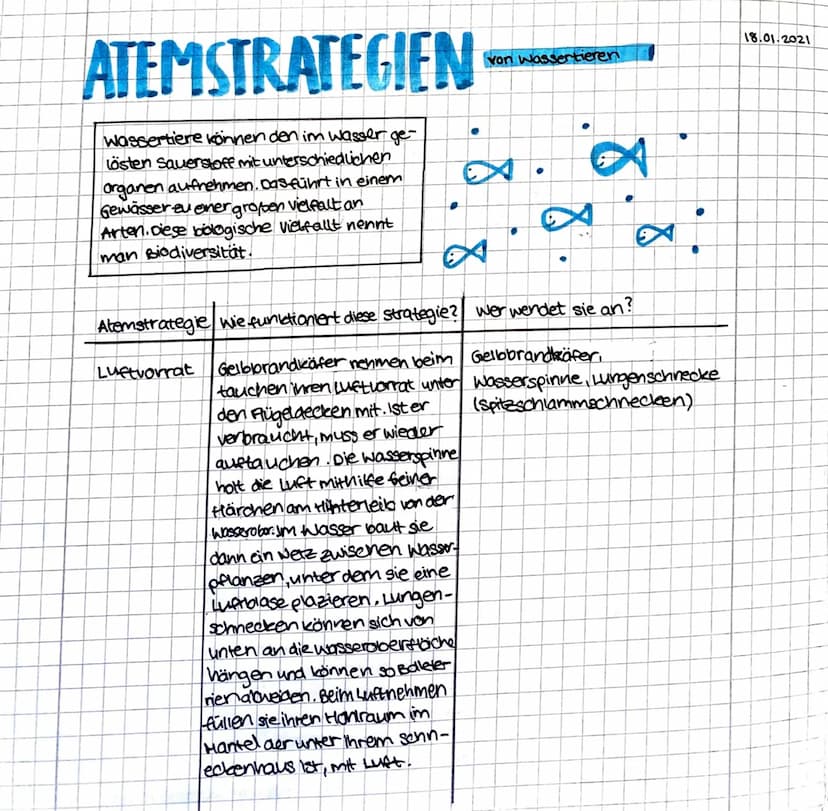 18.01.2021
ATEMSTRATEGIEN von Wassertieren
Wassertiere können den im Wasser ge-
lösten Sauerstoff mit unterschiedlichen
Organen aufnehmen. Das führt in einem
Gewässer zu einer großen Vielfalt an
Arten. Diese biologische Vielfallt nennt
man Biodiversität.
Atemstrategie Wie funktioniert diese Strategie? Wer wendet sie an?
Luftvorrat
Gelbbrandkäfer nehmen beim
tauchen ihren Luftvorrat unter
den Flügeldecken mit. Ist er
verbraucht, muss er wieder
auftauchen. Die Wasserspinne
holt die Luft mithilfe feiner
Härchen am Hinterleib von der
Wasserober. Im Wasser baut sie
dann ein Netz zwischen Wasser-
pflanzen, unter dem sie eine
Luftblase plazieren. Lungen-
schnecken können sich von
unten an die Wasseroberfläche
hängen und können so Bakter
rien abweiden. Beim Luftnehmen
füllen sie ihren Hohlraum im
Mantel der unter ihrem Schn-
eckenhaus ist, mit Luft.
Gelbbrandkäfer,
Wasserspinne, Lungenschnecke
(Spitzschlammschnecken)